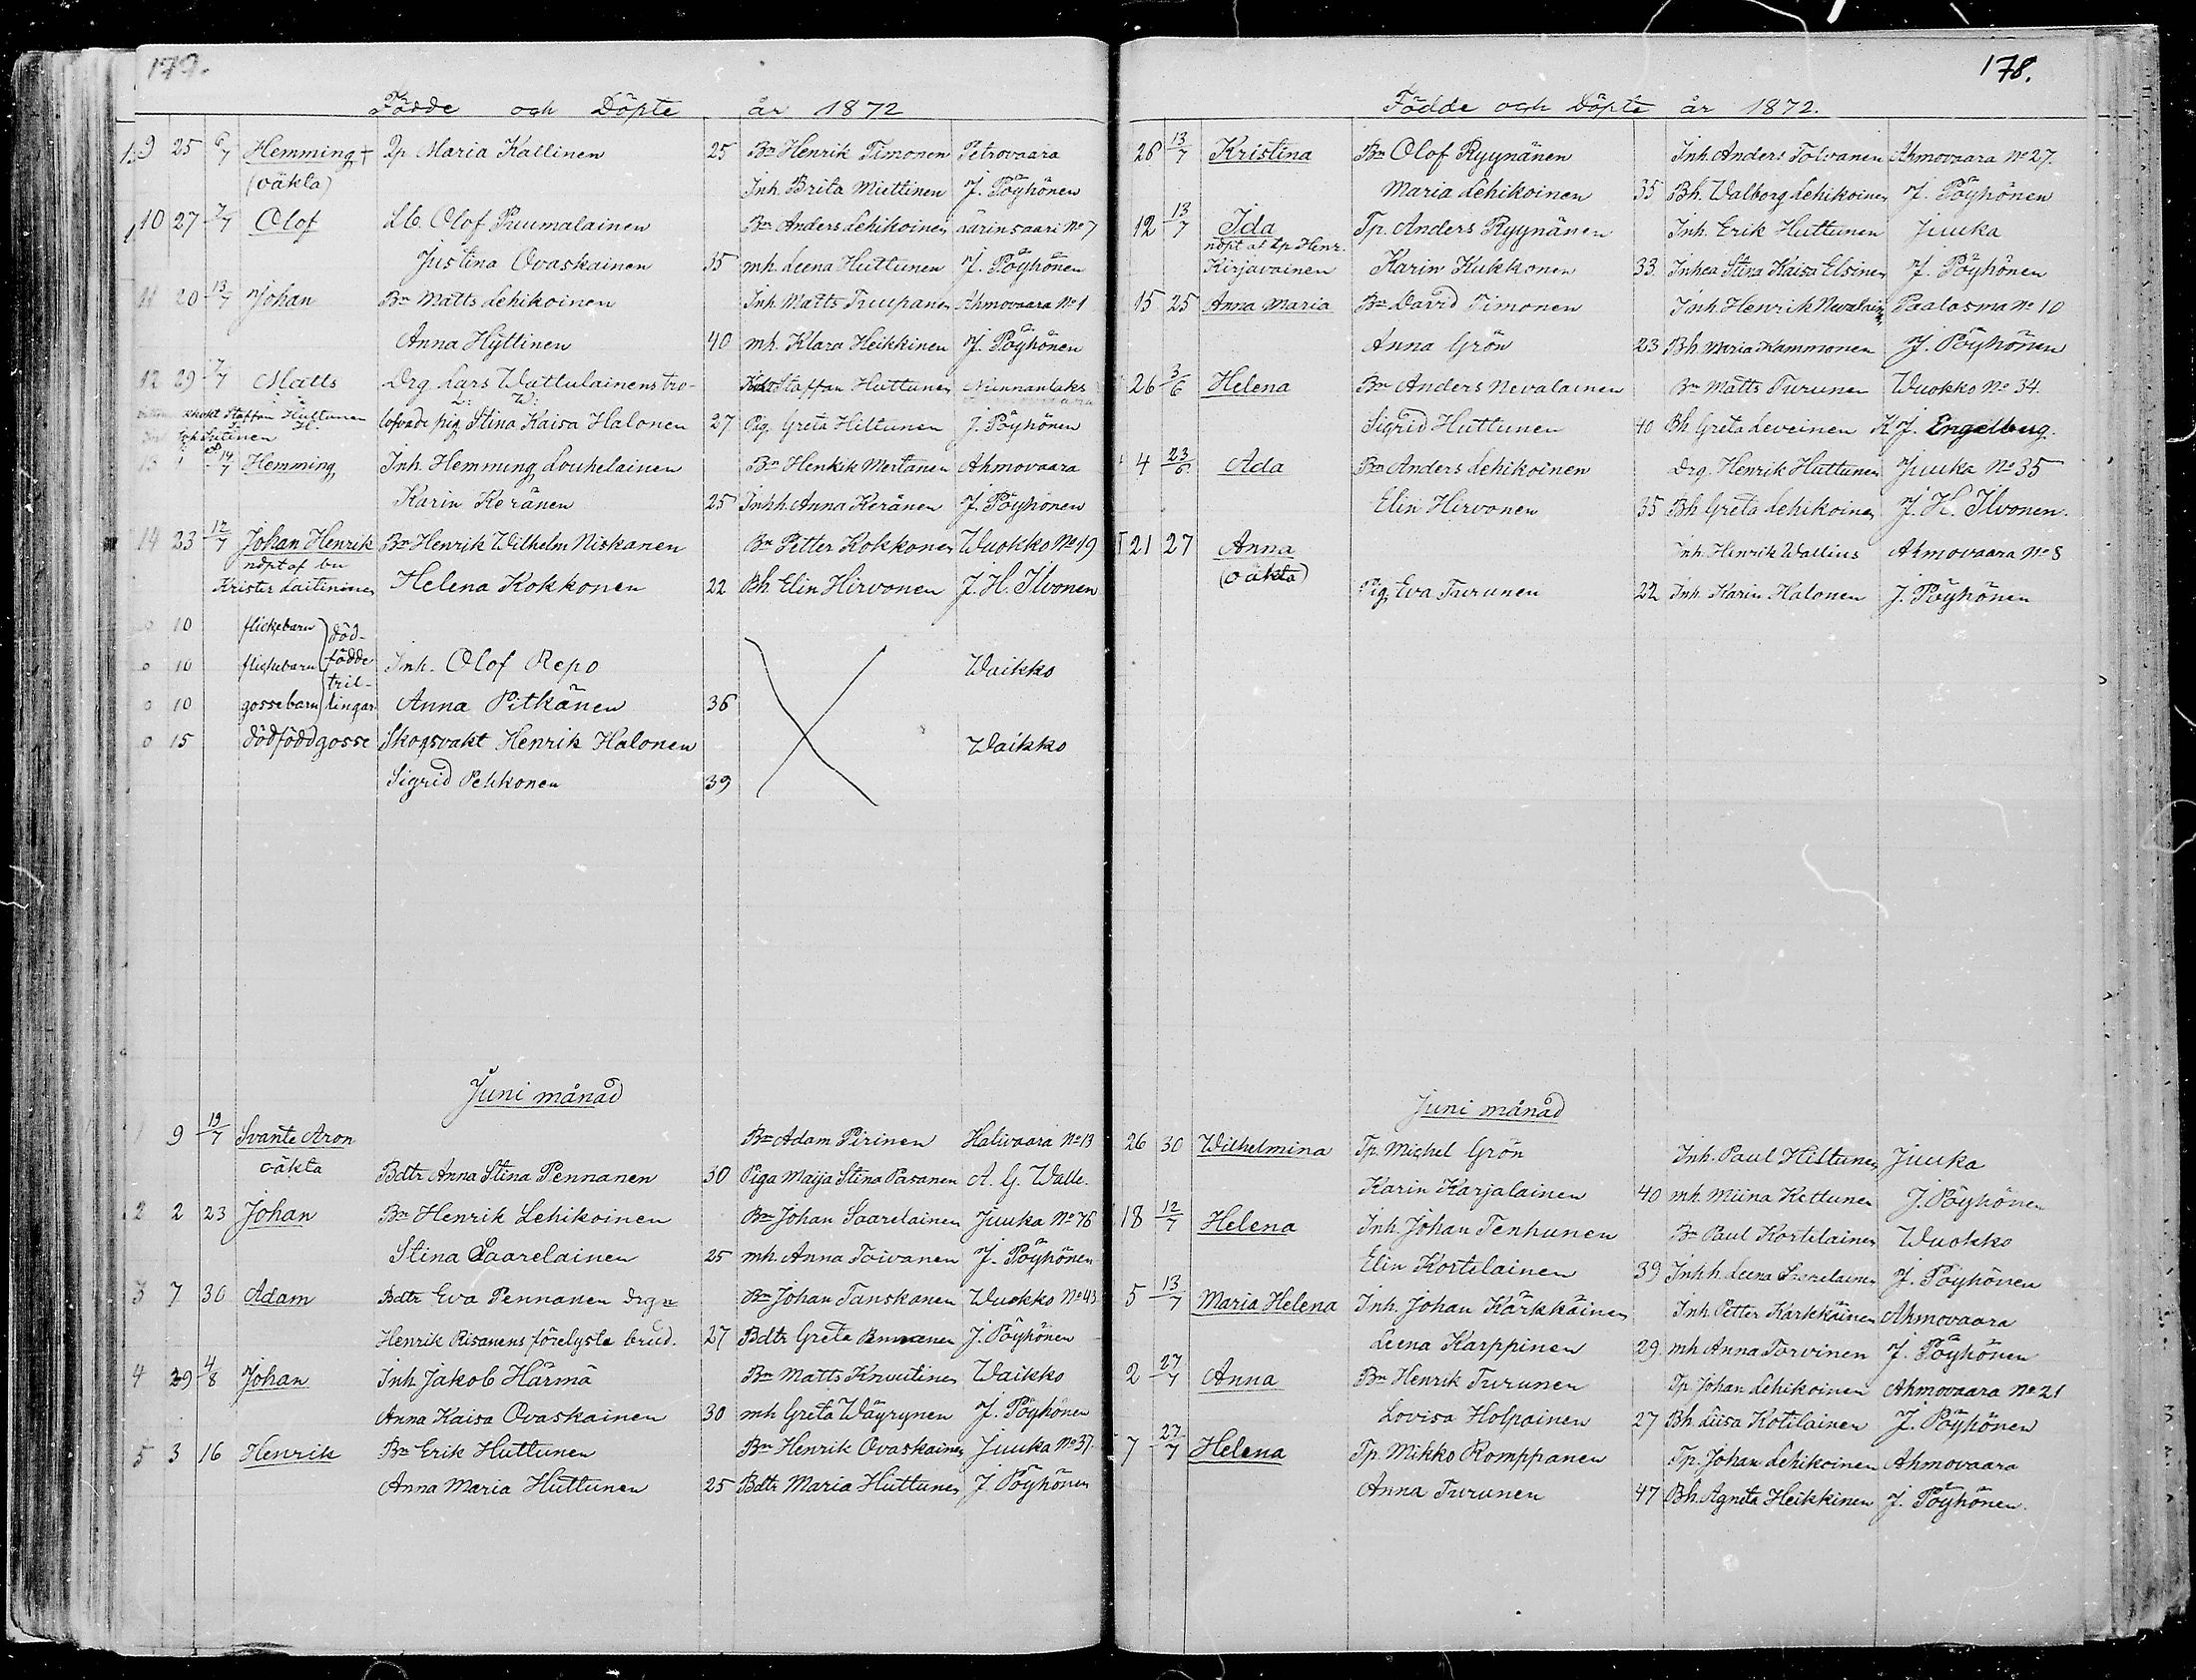 177.
Födde och Döpte år 1872
9 25 6/7 Hemming + Lp Maria Kallinen 25 Bn Henrik Timonen Petrovaara
(oäkta) Inh. Brita Miettinen J. Pöyhönen
10 27 7/7 Olof Lb. Olof Puumalainen Bn Anders Lehikoinen Larinsaari No 7
Justina Ovaskainen 35 mh. Leena Huttunen J. Pöyhönen
11 20 13/7 Johan Bn Matts Lehikoinen Inh. Matts Truupanen Ahmovaara No 1
Anna Hyttinen 40 mh. Klara Heikkinen J. Pöyhönen
12 29 7/7 Matts Drg. Lars Wattulainens tro- Staffan Huttunen Nunnanlaks
Staffan Huttunen lofvade pig. Stina Kaisa Halonen 27 Pig. Greta Hiltunen J. Pöyhönen
Sutinen
1 14/7 Hemming Inh. Hemming Loukelainen Bn Henkik Mertanen Ahmovaara
Karin Keränen 25 Inhh. Anna Keränen J. Pöyhönen
14 23 12/7 Johan Henrik Bn Henrik Wilhelm Niskanen Bn Petter Kokkonen Wuokko No 19
nöpt af bn
Krister Laitininen Helena Kokkonen 22 Bh. Elin Hirvonen J. H. Ilvonen
10 flickebarn död-
10 flickebarn födde Inh. Olof Repo Waikko
tril-
10 gossebarn lingar Anna Pitkänen 36
15 dödfödd gosse Skogsvakt Henrik Halonen Waikko
Sigrid Pekkonen 39
Juni månad
9 19/7 Svante Aron Bn Adam Pirinen Halivaara No 13
oäkta Bdtr Anna Stina Pennanen 30 Piga Maija Stina Pasanen A. G. Walle.
2 2 23 Johan Bn Henrik Lehikoinen Bn Johan Saarelainen Juuka No 76
Stina Saarelainen 25 mh. Anna Toivanen J. Pöyhönen
3 7 30 Adam Bdtr Eva Pennanen drgn Bn Johan Tanskanen Wuokko No 43
Henrik Risanens förelyste brud. 27 Bdtr Greta J. Pöyhönen
4 29 4/8 Johan Inh. Jakob Härmä Bn Matts Knuutinen Waikko
Anna Kaisa Ovaskainen 30 mh Greta Wäyrynen J. Pöyhönen
5 3 16 Henrik Bn Erik Huttunen Bn Henrik Ovaskainen Juuka No 37.
Anna Maria Huttunen 25 Bdtr Maria Huttunen J Pöyhönen
178.
Födde och Döpte år 1872.
26 13/7 Kristina Bn Olof Ryynänen Inh. Anders Tolvanen Ahmovaara No 27.
Maria Lehikoinen 35 Bh. Walborg Lehikoinen J. Pöyhönen
12 13/7 Ida Tp. Anders Ryynänen Inh. Erik Huttunen Juuka
nöpt af Lp Henr.
Kirjavainen Karin Kukkonen 33 Inhea Stina Kaisa Elsinen J. Pöyhönen
15 25 Anna Maria Bn David Timonen Inh. Henrik Nevalainen Paalasma No 10
Anna Grön 23 Bh. Maria Kammonen J. Pöyhönen
26 3/6 Helena Bn Anders Nevalainen Bn Matts Turunen Wuokko No 34.
Sigrid Huttunen 40 Bh. Greta Leveinen K J. Engelberg.
4 23/6 Ada Bn Anders Lehikoinen Drg. Henrik Huttunen Juuka No 35
Elin Hirvonen 35 Bh Greta Lehikoinen J. H. Ilvonen.
21 27 Anna Inh. Henrik Wallius Ahmovaara No 8
(oäkta) Pig. Eva Turunen 22 Inh. Karin Halonen J. Pöyhönen
Juni månad
26 30 Wilhelmina Tp. Michel Grön Inh. Paul Hiltunen Juuka
Karin Karjalainen 40 mh Miina Kettunen J. Pöyhönen
18 12/7 Helena Inh. Johan Tenhunen Bn Paul Kortelainen Wuokko
Elin Kortelainen 39 Inhh. Leena Saarelainen J. Pöyhönen
5 13/7 Maria Helena Inh. Johan Kärkkäinen Inh. Petter Kärkkäinen Ahmovaara
Leena Karppinen 29 mh Anna Torvinen J. Pöyhönen
2 27/7 Anna Bn Henrik Turunen Tp. Johan Lehikoinen Ahmovaara No 21
Lovisa Holpainen 27 Bh. Liisa Kotilainen J. Pöyhönen
7 27/7 Helena Tp. Mikko Romppanen Tp. Johan Lehikoinen Ahmovaara
Anna Turunen 47 Bh. Agneta Heikkinen J. Pöyhönen.